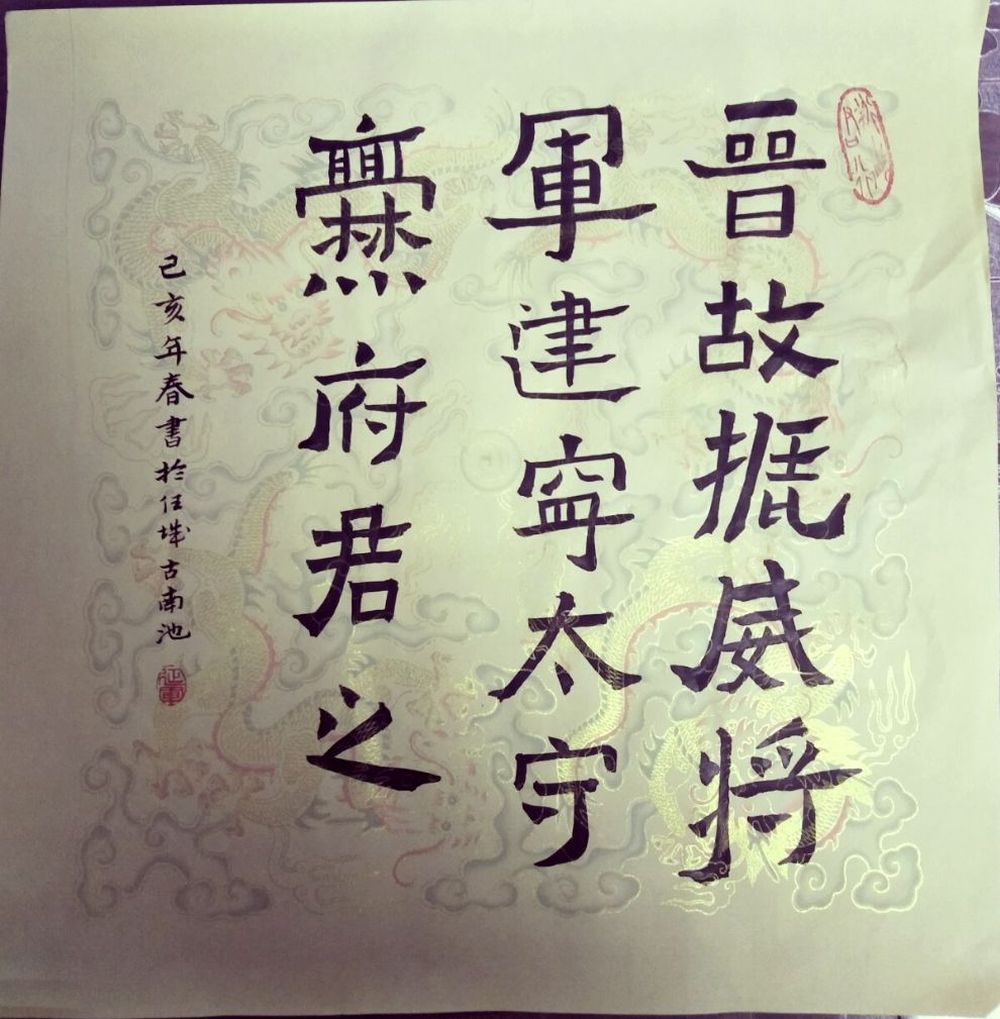 晉故振威将
軍建寧太守
爨府君之
己亥年春書於任城古南池